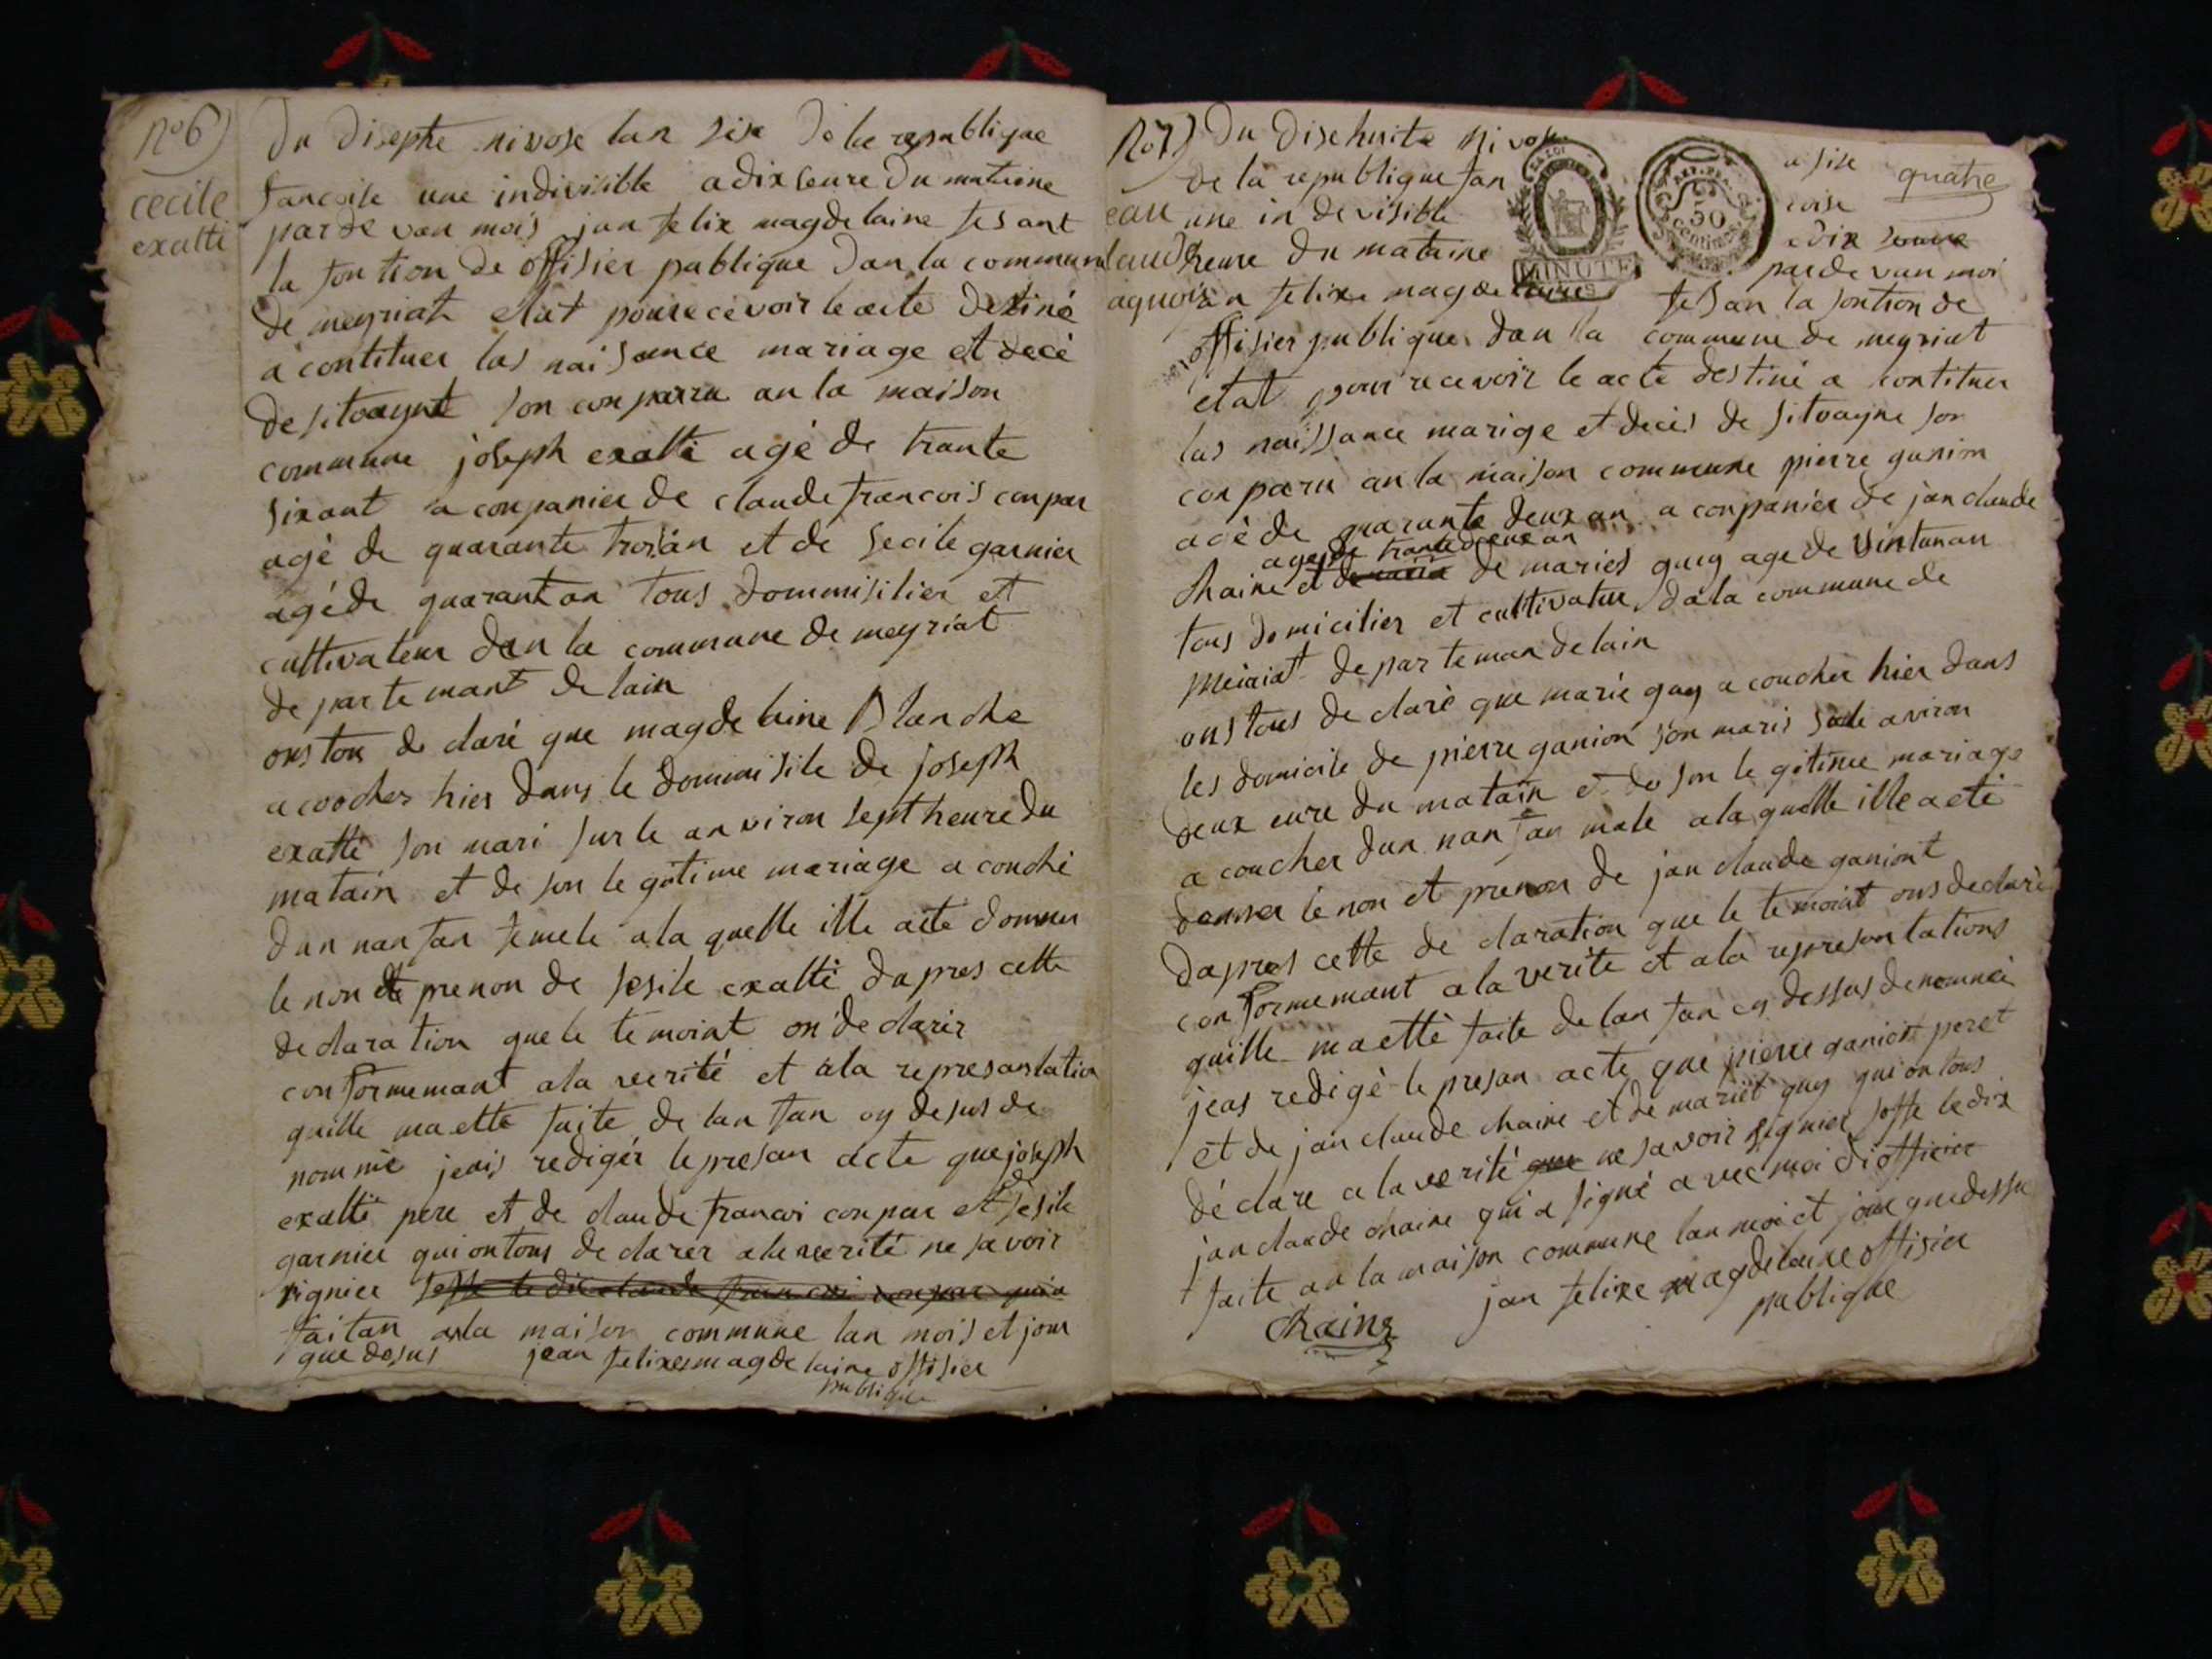 No 6)
cecile
exatti
Du diseptte nivose lan six de la republique
francoise une indivisible a dix seure du matine
parde van mois jan felix magdelaine fesant
la fontion de offisier publique dan la commun
de meyriat elat pour recevoir le acte destiné
a contituer las naisance mariage et decè
de sitoaynt son conparru an la maison
commune joseph exatti agé de trante
sixant a conpanier de claude francois conpar
agé de quarante troisan et de secile garnier
agé de quarant an tous dommisilier et
cultivateur dan la commune de meyriat
de parte mant de lain
ons tou de claré que magdelaine Blanche
a coocher hier dans le dommisile de joseph
exatti son mari sur le an viron sept heure du
matain et de son le gitime mariage a couché
dun nan fan femele a la quelle ille acte donner
le non et prenon de sesile exatti dapres cette
declaration que le temoint on declarér
conformemant a la verité et a la represantation
quille ma ette faite de lan fan cy desus de
nommé jeais redigér le presan acte que joseph
exatti pere et de claude francoi conpar et de sesile
garnier qui on tous de clarer a la verité ne savoir
signier soffe le dic claude francoi conpar qui a
fait an a la maison commune lan mois et jour
que desus jean felixe magdelaine offisier
publique
No 7) Du dise huite nivose
a sise
quatre
de la republique fan
coise
eau une in devisible
a dix seure
laud heure du mataine
par de van moi
aquois jan felixe magdelaine fesan la fontion de
LA LOI
MINUTE
REP. FRA.
50
centimes
offisier publique dan la commune de meyriat
etat pour recevoir le acte destiné a contituer
las naissance marige et decés de sitoayne son
con paru an la maison commune pierre ganion
agé de quarante deux an a conpanier de jan claude
age de trante deux an
chaine et de marie de maries guy age de vintunan
tous domicilier et cultivateur da la commune de
meiriat de parteman de lain
ons tous de claré que marie guy a coucher hier dans
les domicile de pierre ganion son maris sule aviron
deux eure du matain et de son le gitime mariage
a coucher dun nan fan male a la quelle ille a eté
donner le non et prenon de jan claude ganiont
dapres cette de claration que le temoint ons declaré
conformemant a la verite et a la represontations
quille ma etté faite de lan fan cy dessus denommé
jeas redigé le presan acte que pierre ganiont peret
et de jan claude chaine et de mariet guy qui on tous
déclare a la verité que ne savoir signier soffe le dix
jan claude chaine qui a signé a vec moi di officier
faite an la maison commune lan moi et jour que dessu
chaine
jan felixe magdelaine offisier
publique